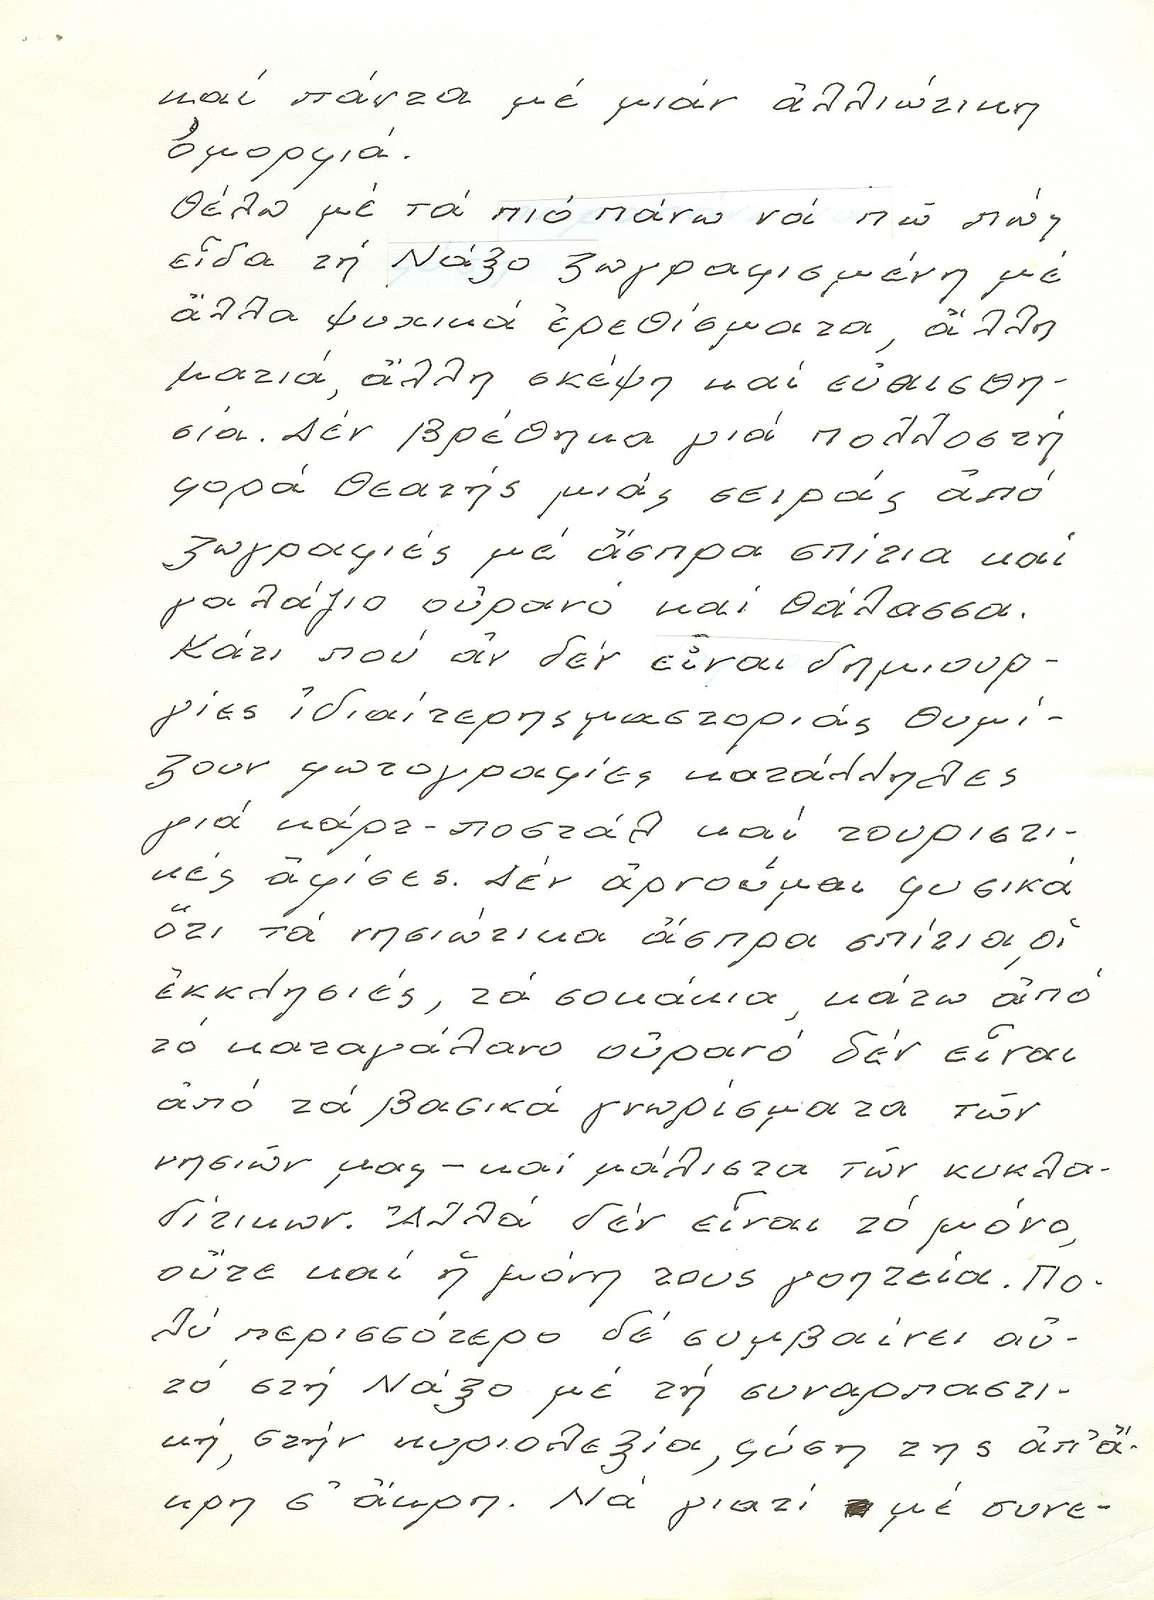 καί πάντα μέ μιάν ἀλλιώτικη
ὀμορφιά.
Θέλω μέ τά πιό πάνω νά πῶ πώς
εἶδα τή Νάξο ζωγραφισμένη μέ
ἄλλα ψυχικά ἐρεθίσματα, ἄλλη
ματιά, ἄλλη σκέψη καί εὐαισθη-
σία. Δέν βρέθηκα γιά πολλοστή
φορά θεατής μιάς σειράς ἀπό
ζωγραφιές μέ ἄσπρα σπίτια καί
γαλάζιο οὐρανό καί θάλασσα.
Κάτι πού ἄν δέν εἶναι δημιουρ-
γίες ἰδιαίτερης μαστοριάς θυμί-
ζουν φωτογραφίες κατάλληλες
γιά κάρτ-ποστάλ καί τουριστι-
κές ἀφίσες. Δέν ἀρνοῦμαι φυσικά
ὅτι τά νησιώτικα ἄσπρα σπίτια, οἱ
ἐκκλησιές, τά σοκάκια, κάτω ἀπό
τό καταγάλανο οὐρανό δέν εἶναι
ἀπό τά βασικά γνωρίσματα τῶν
νησιῶν μας - καί μάλιστα τῶν κυκλα-
δίτικων. Ἀλλά δέν εἶναι τό μόνο,
οὔτε καί ἡ μόνη τους γοητεία. Πο-
λύ περισσότερο δέ συμβαίνει αὐ-
τό στή Νάξο μέ τή συναρπαστι-
κή, στήν κυριολεξία, φύση της ἀπ' ἄ-
κρη σ' ἄκρη. Νά γιατί μέ συνε-